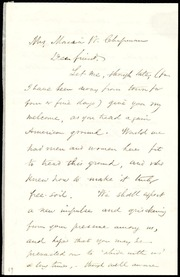 Mrs. Maria W. Chapman
Dear friend,
Let me, though late, (for
I have been away from town for
four or five days) give you my
welcome, as you tread again
American ground. Would we
had men and women here fit
to tread this ground, and who
knew how to make it truly
free soil. We shall expect
a new impulse and quickening
from your presence among us,
and hope that you may be
permitted to "abide with us"
a long time. And will